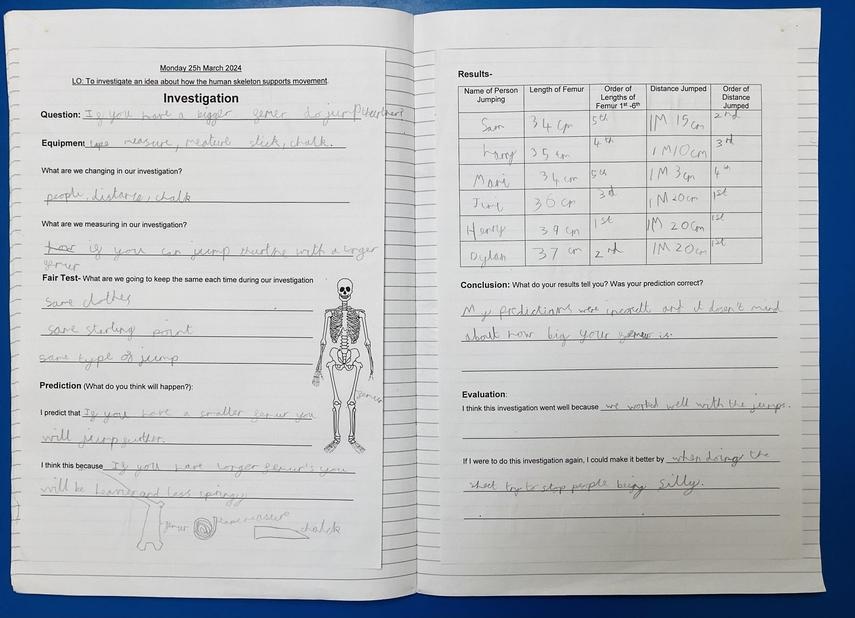 Monday 25h March 2024
LO: To investigate an idea about how the human skeleton supports movement.
Investigation
Question: If you have a bigger femer do jump
Equipment tape measure, meature stick, chalk.
What are we changing in our investigation?
people, distance, chalk
What are we measuring in our investigation?
how if you can jump furthe with a larger
femur
Fair Test- What are we going to keep the same each time during our investigation
same clothes
same starting point
same type of jump
femur
Prediction (What do you think will happen?):
I predict that If you have a smaller femur you
will jump further.
I think this because If you have larger femur's you
will be heavier and less springy
femur
chalk
Results-
Name of Person Jumping Length of Femur Order of Lengths of Femur 1st -6th Distance Jumped Order of Distance Jumped
Sam 34 cm 5th 1M 15cm 2nd
Larry 35cm 4th 1M10cm 3rd
34 cm 5th 1M 3cm 4th
36 cm 3rd 1M20cm 1st
Henry 39 cm 1st 1M 20cm 1st
Dylan 37 cm 2nd 1M 20cm 1st
Conclusion: What do your results tell you? Was your prediction correct?
My predictions were and it doesn't mind
about how big your femur is.
Evaluation:
I think this investigation went well because we worked well with the jumps.
If I were to do this investigation again, I could make it better by when doing the
sheet try to stop people being silly.